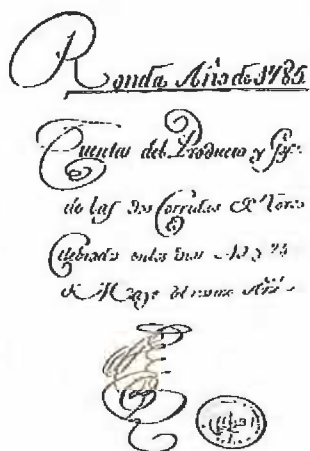 Ronda Año de 1785
Cuentas del Producto y
de las dos Corridas de Toros
Celebradas en los Dias 19 y 24
de Mayo del mismo Año